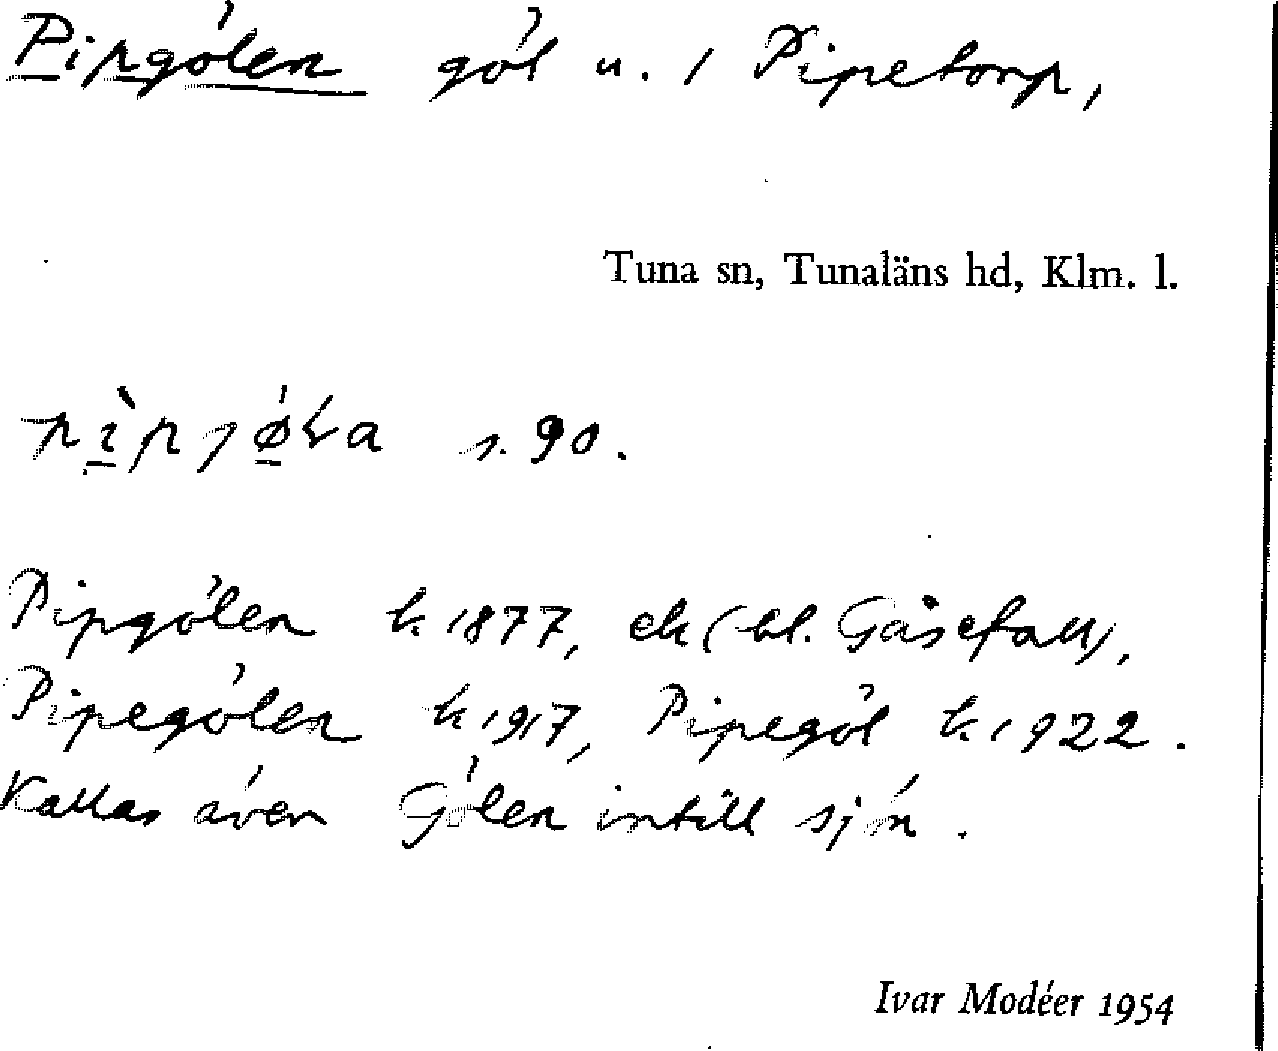 Pipgölen göl u. / Pipetorp,
Tuna sn, Tunaläns hd, Klm. l.
s. 90.
Pipgölen k. 1877, ek (bl. Gåsefall),
Pipegölen k 1917, Pipegöl k. 1922.
Kallas även Gölen intill sjön.
Ivar Modéer 1954